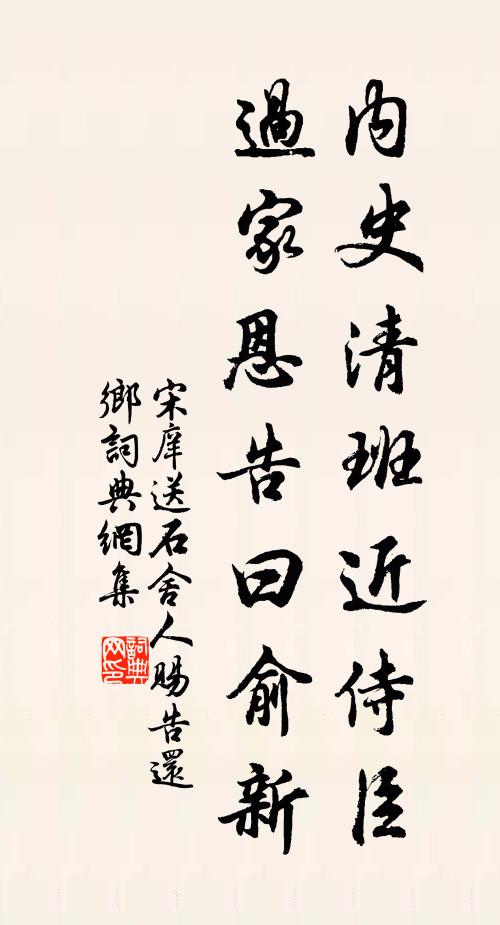 内史清班近侍臣
過家恩告曰俞新
宋庠送石舍人賜告還
鄉詞典網集
詞典
网印